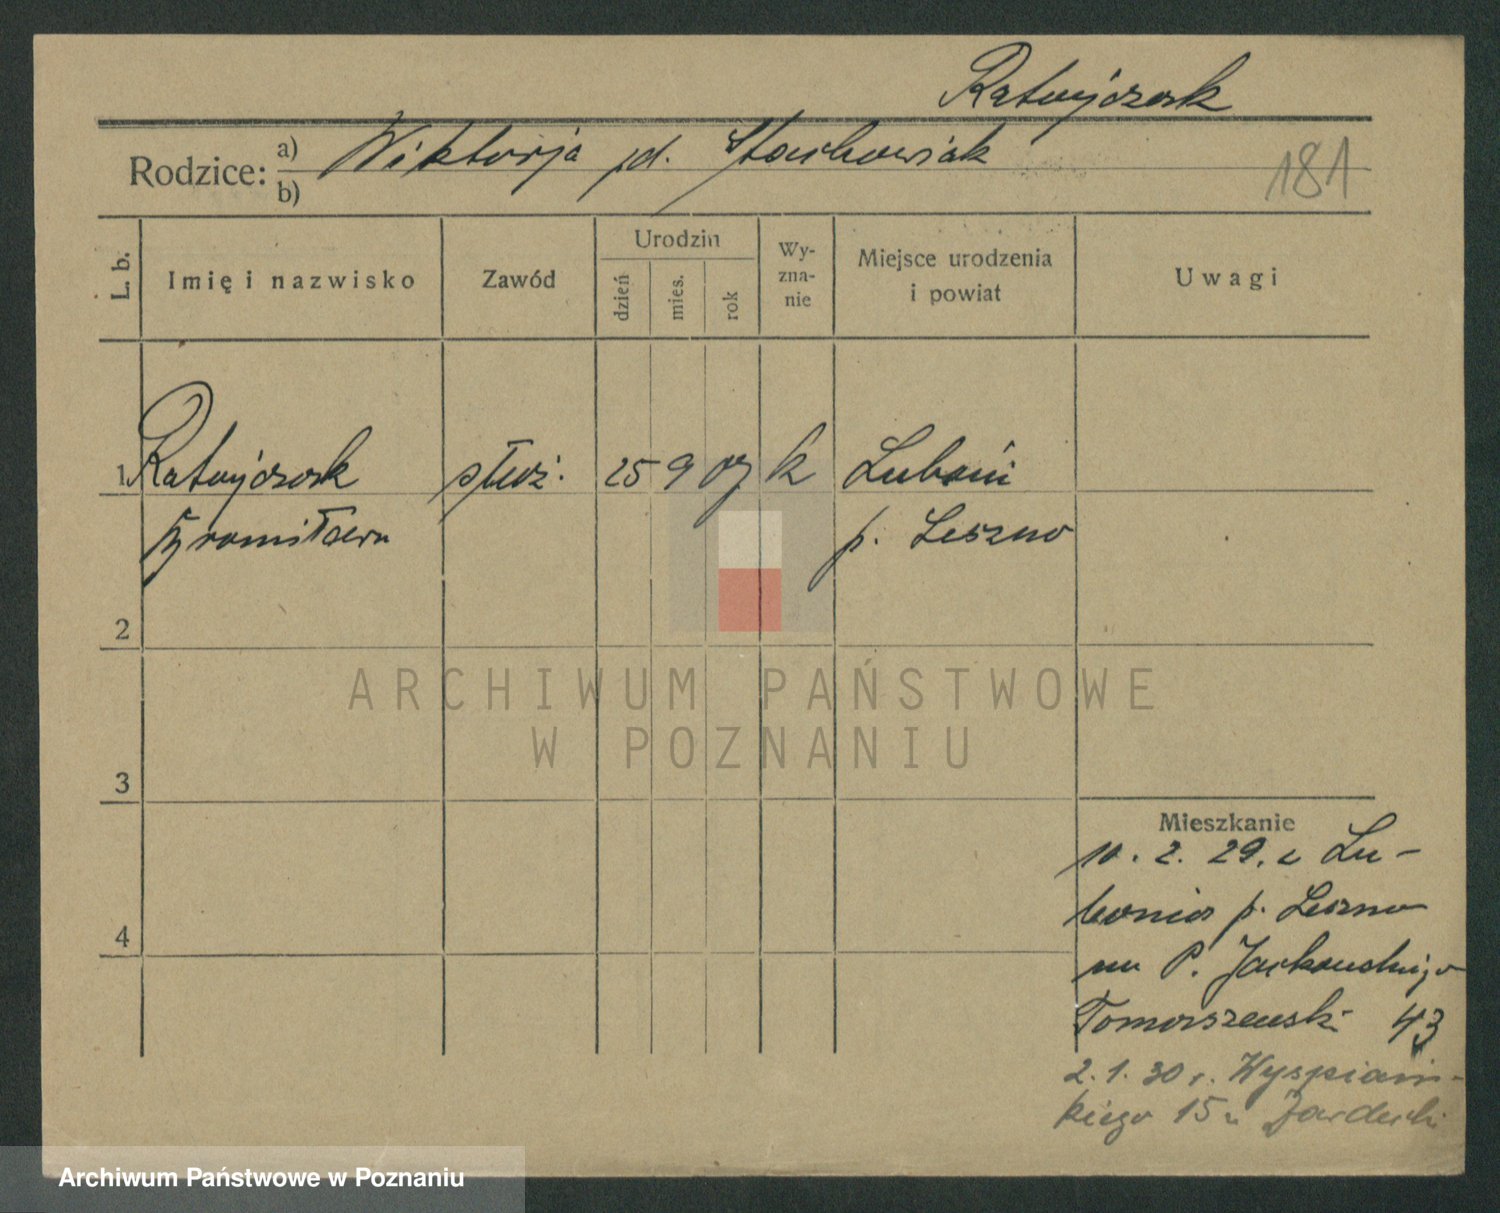 Ratajczak
Rodzice: a) Wiktorja pd. Stachowiak
b)
181
L. b.
Imię i nazwisko
Zawód
Urodzin
dzień
mies.
rok
Wy-
zna-
nie
Miejsce urodzenia
i powiat
Uwagi
1 Ratajczak służ. 25 9 07 k Luboń
Bromisława p. Leszno
2
3
4
Mieszkanie
10. 2. 29. z Lu-
bonia p. Leszno
P. Jackowskiego
43
2. 1. 30 r. Wyspiań-
kiego 15 u
ARCHIWUM PAŃSTWOWE
W POZNANIU
Archiwum Państwowe w Poznaniu